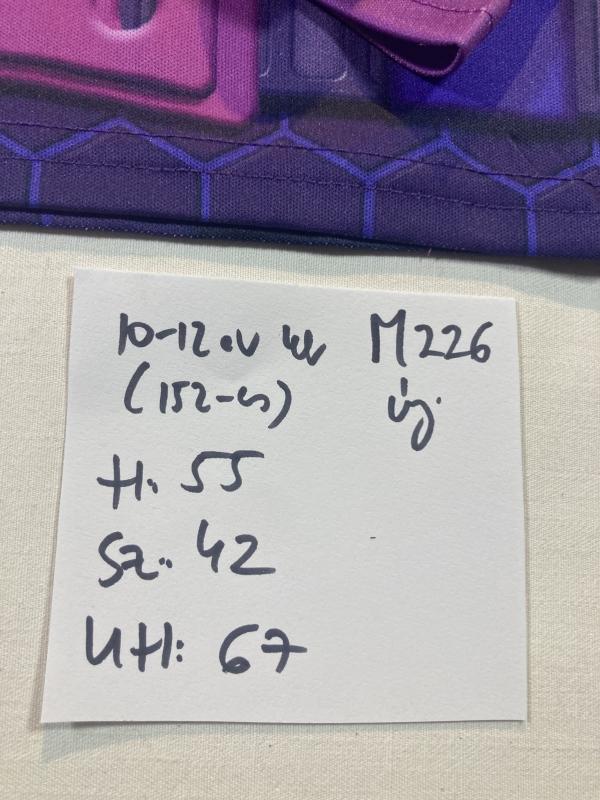 10-12 év kb M226
(152-es) új
H: 55
Sz: 42
UH: 67